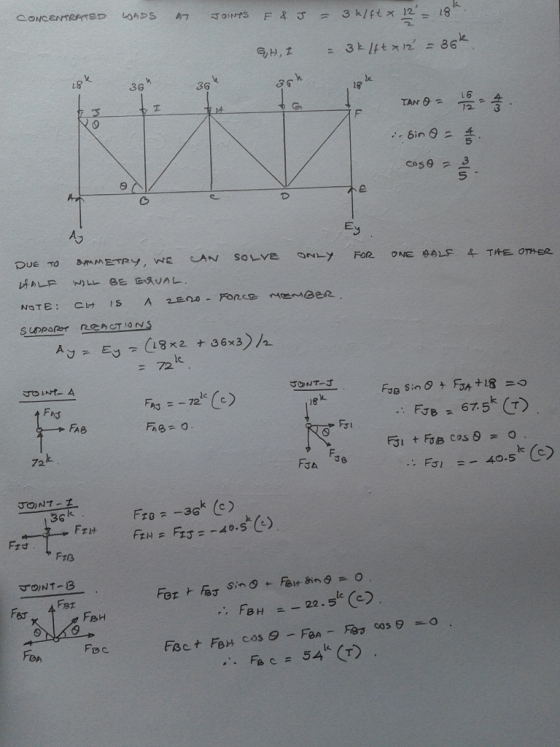 CONCENTRATED LOADS AT JOINTS F & J = 3k/ft × 12'/2 = 18k
G,H,I = 3k/ft × 12' = 36k
18k 36k 36k 36k 18k
J I H G F
θ
θ
A B C D E
Ay Ey
TAN θ = 16/12 = 4/3.
∴ sin θ = 4/5
cos θ = 3/5.
DUE TO SYMMETRY, WE CAN SOLVE ONLY FOR ONE HALF & THE OTHER
HALF WILL BE EQUAL.
NOTE: CH IS A ZERO-FORCE MEMBER.
SUPPORT REACTIONS
Ay = Ey = (18×2 + 36×3)/2
= 72k.
JOINT-A
FAJ
FAB
72k
FAJ = -72k (C)
FAB = 0.
JOINT-J
18k
FJI
θ
FJB
FJA
FJB sin θ + FJA + 18 = 0
∴ FJB = 67.5k (T)
FJI + FJB cos θ = 0.
∴ FJI = - 40.5k (C)
JOINT-I
36k
FIJ FIH
FIB
FIB = -36k (C)
FIH = FIJ = -40.5k (C).
JOINT-B
FBJ FBI FBH
θ θ
FBA FBC
FBI + FBJ sin θ + FBH sin θ = 0.
∴ FBH = - 22.5k (C).
FBC + FBH cos θ - FBA - FBJ cos θ = 0.
∴ FBC = 54k (T).